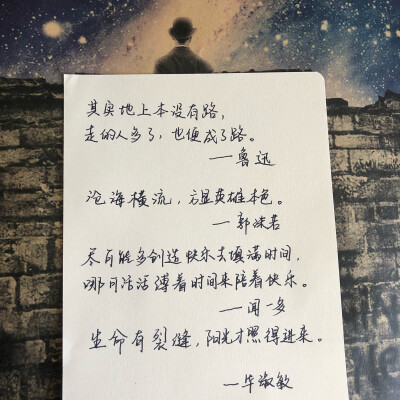 其实地上本没有路，
走的人多了，也便成了路。
——鲁迅
沧海横流，方显英雄本色。
——郭沫若
尽可能多创造快乐去填满时间，
哪可活活缚着时间来陪着快乐。
——闻一多
生命有裂缝，阳光才照得进来。
——毕淑敏